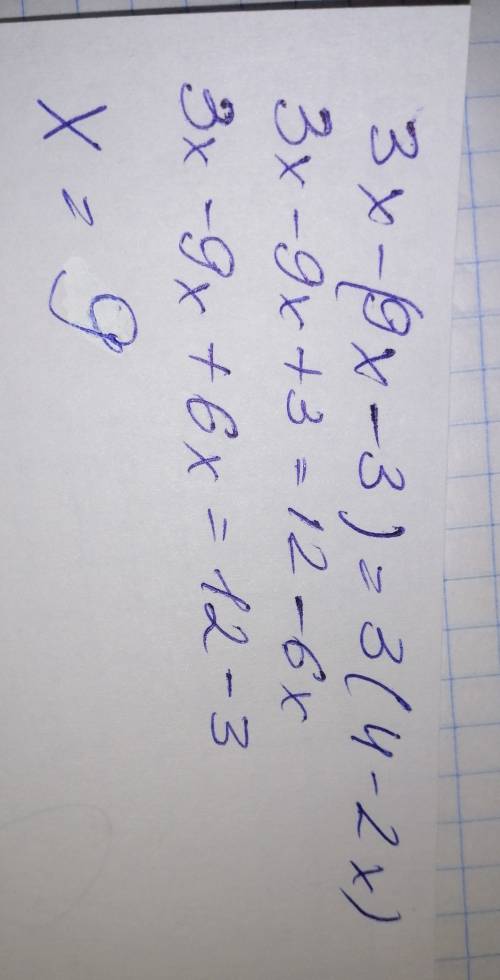 3x-(9x-3)=3(4-2x)
3x-9x+3=12-6x
3x-9x+6x=12-3
x=9